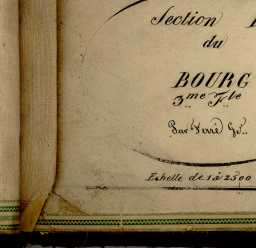 Section
du
BOURG
3.me F.lle
Par Verré Gr.
Echelle de 1 à 2500